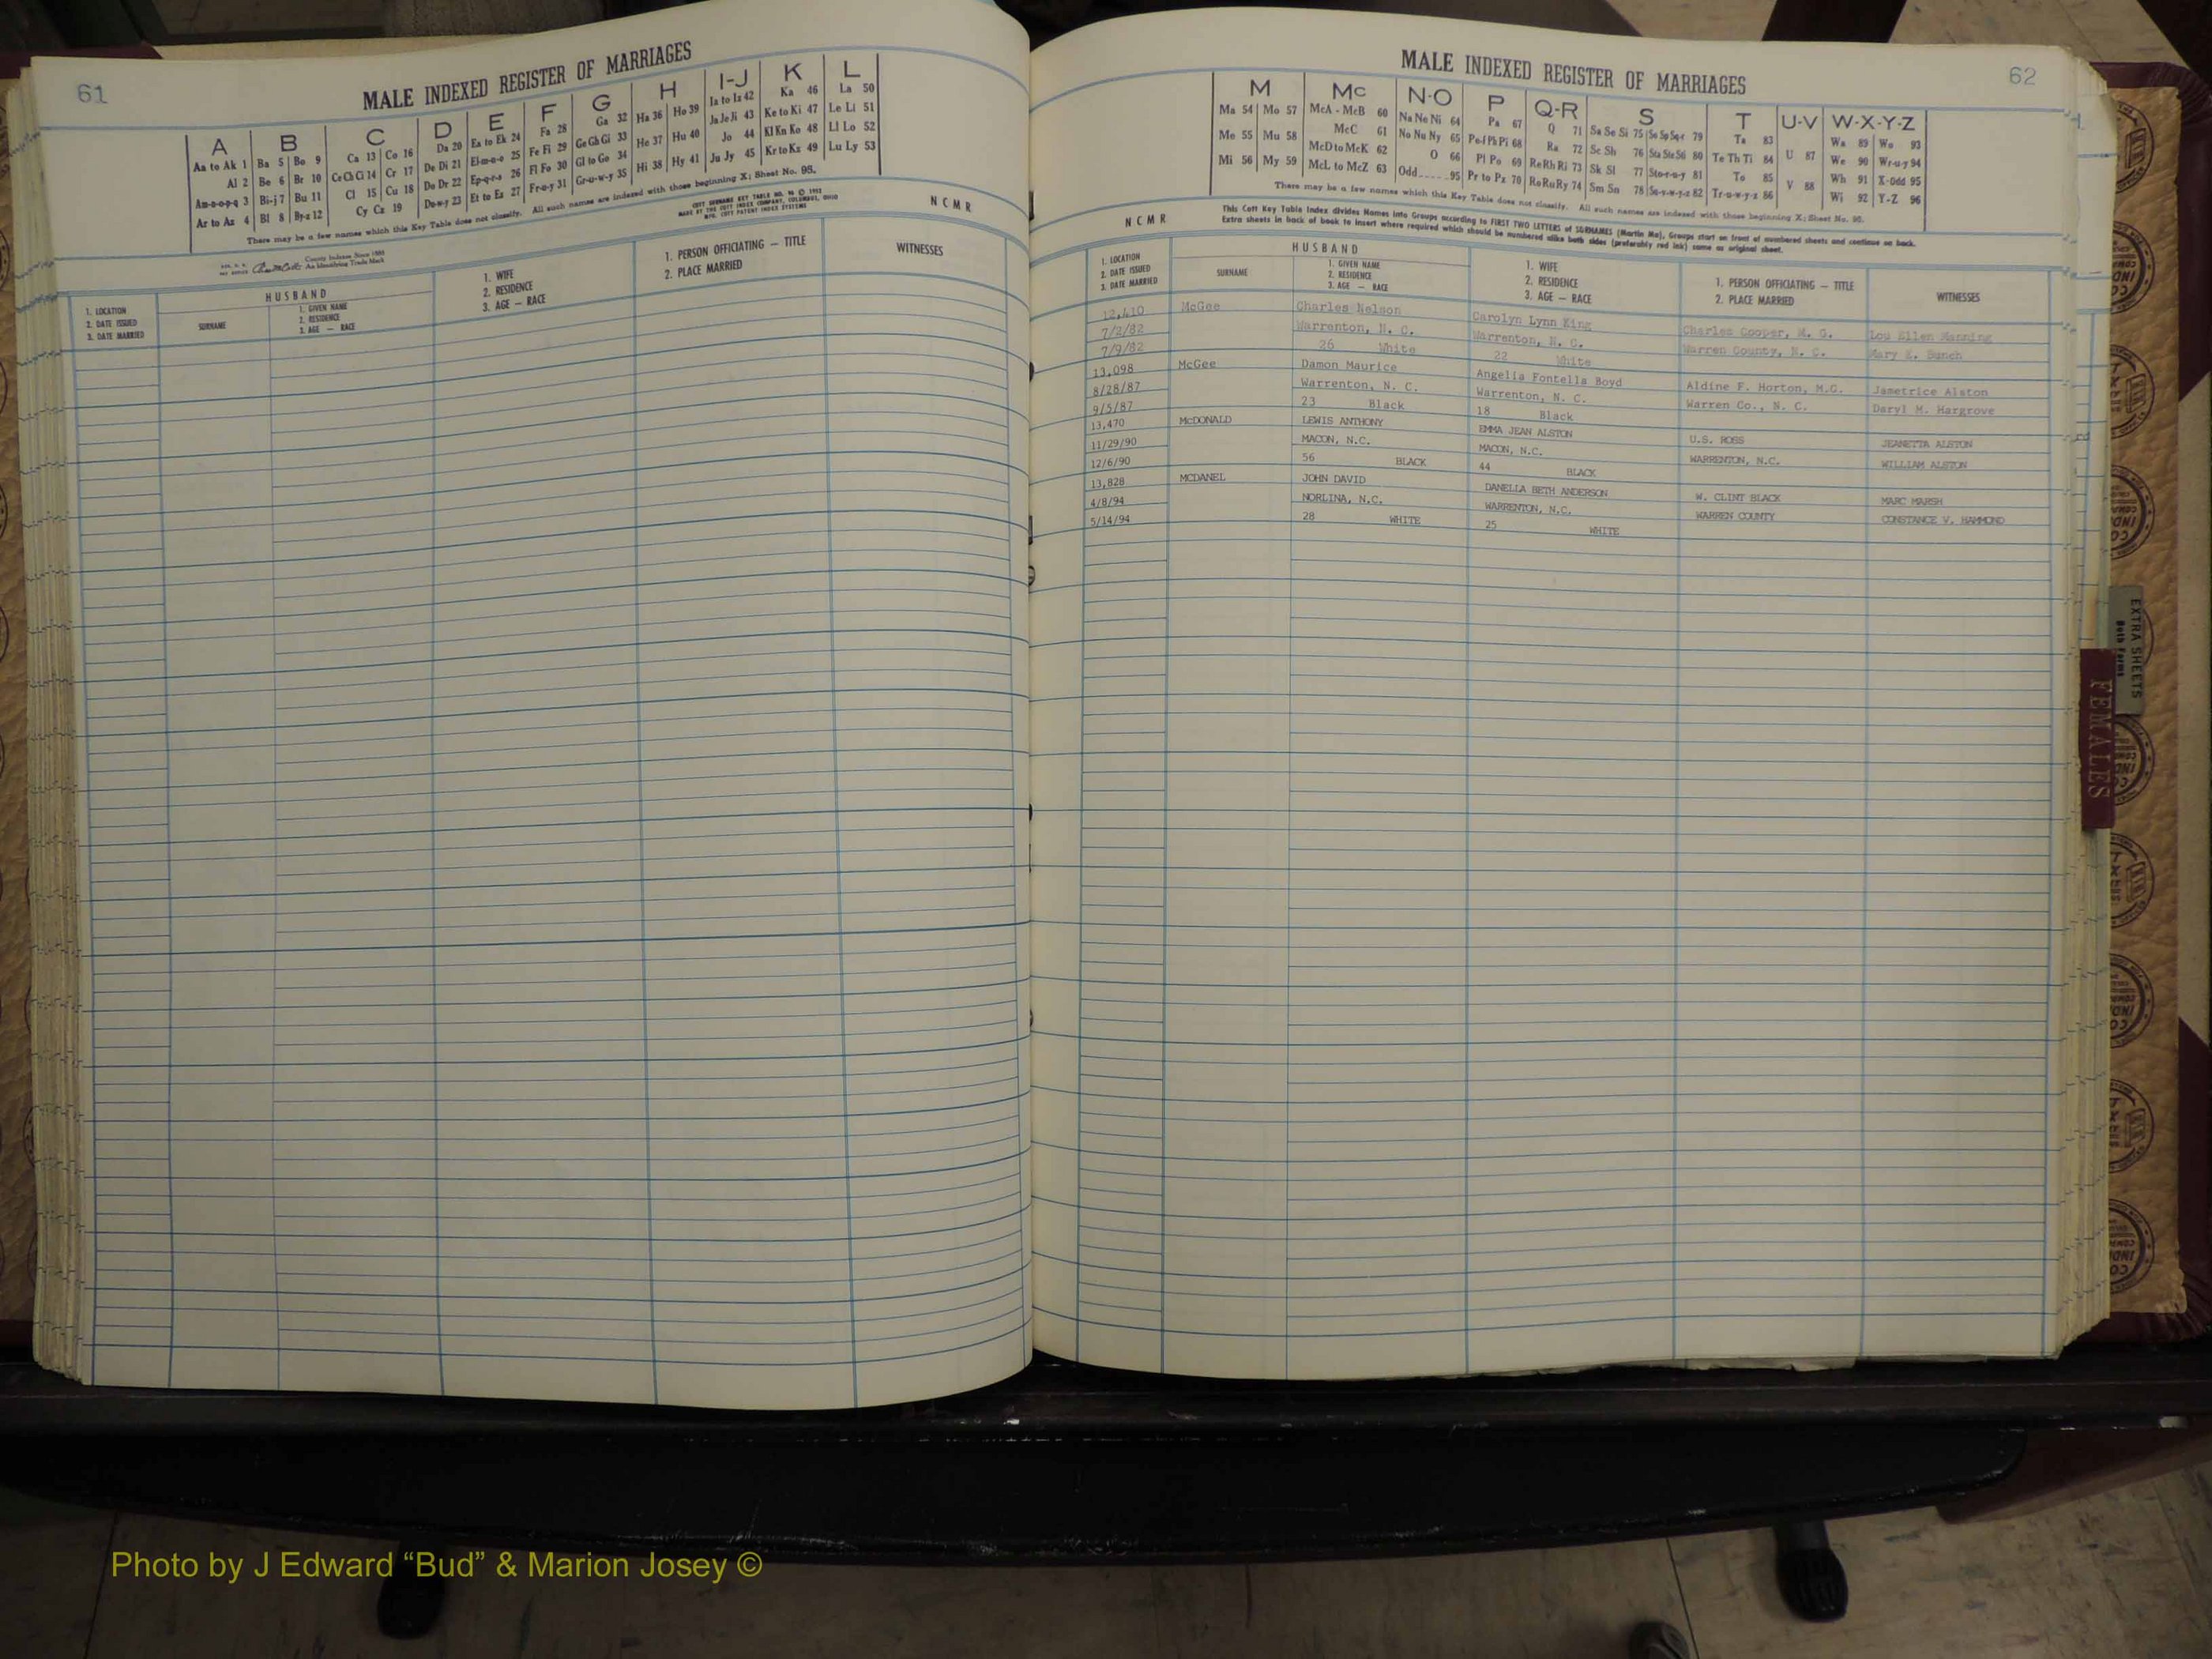 61
MALE INDEXED REGISTER OF MARRIAGES
A B C D E F G H I-J K L
Aa to Ak 1 Ba 5 Bo 9 Ca 13 Co 16 Da 20 Ea to Ek 24 Fa 28 Ga 32 Ha 36 Ho 39 Ia to Iz 42 Ka 46 La 50
Al 2 Be 6 Br 10 Ce Ch Ci 14 Cr 17 De Di 21 El-m-n-o 25 Fe Fi 29 Ge Gh Gi 33 He 37 Hu 40 Ja Je Ji 43 Ke to Ki 47 Le Li 51
Am-n-o-p-q 3 Bi-j 7 Bu 11 Cl 15 Cu 18 Do Dr 22 Ep-q-r-s 26 Fl Fo 30 Gl to Go 34 Hi 38 Hy 41 Jo 44 Kl Kn Ko 48 Ll Lo 52
Ar to Az 4 Bl 8 By-z 12 Cy Cz 19 Du-w-y 23 Et to Ez 27 Fr-u-y 31 Gr-u-w-y 35 Ju Jy 45 Kr to Kz 49 Lu Ly 53
There may be a few names which this Key Table does not classify. All such names are indexed with those beginning X; Sheet No. 95.
COTT SURNAME KEY TABLE NO.
MADE BY THE COTT INDEX COMPANY, COLUMBUS, OHIO
MFG. COTT PATENT INDEX SYSTEMS
N C M R
County Indexes Since 1888
An Identifying Trade Mark
1. LOCATION
2. DATE ISSUED
3. DATE MARRIED
HUSBAND
SURNAME
1. GIVEN NAME
2. RESIDENCE
3. AGE — RACE
1. WIFE
2. RESIDENCE
3. AGE — RACE
1. PERSON OFFICIATING — TITLE
2. PLACE MARRIED
WITNESSES
62
MALE INDEXED REGISTER OF MARRIAGES
M Mc N-O P Q-R S T U-V W-X-Y-Z
Ma 54 Mo 57 McA - McB 60 Na Ne Ni 64 Pa 67 Q 71 Sa Se Si 75 So Sp Sq-r 79 Ta 83 U 87 Wa 89 Wo 93
Me 55 Mu 58 McC 61 No Nu Ny 65 Pe-f Ph Pi 68 Ra 72 Sc Sh 76 Sta Ste Sti 80 Te Th Ti 84 V 88 We 90 Wr-u-y 94
Mi 56 My 59 McD to McK 62 O 66 Pl Po 69 Re Rh Ri 73 Sk Sl 77 Sto-r-u-y 81 To 85 Wh 91 X-Odd 95
McL to McZ 63 Odd 95 Pr to Pz 70 Ro Ru Ry 74 Sm Sn 78 Su-v-w-y-z 82 Tr-u-w-y-z 86 Wi 92 Y-Z 96
There may be a few names which this Key Table does not classify. All such names are indexed with those beginning X; Sheet No. 95.
N C M R
This Cott Key Table Index divides Names into Groups according to FIRST TWO LETTERS of SURNAMES (Martin Ma), Groups start on front of numbered sheets and continue on back.
Extra sheets in back of book to insert where required which should be numbered alike both sides (preferably red ink) same as original sheet.
1. LOCATION
2. DATE ISSUED
3. DATE MARRIED
HUSBAND
SURNAME
1. GIVEN NAME
2. RESIDENCE
3. AGE — RACE
1. WIFE
2. RESIDENCE
3. AGE — RACE
1. PERSON OFFICIATING — TITLE
2. PLACE MARRIED
WITNESSES
12,410 McGee Charles Nelson Carolyn Lynn King Charles Cooper, M. G. Lou Ellen Manning
7/2/82 Warrenton, N. C. Warrenton, N. C. Warren County, N. C. Mary E. Bunch
7/9/82 26 White 22 White
13,098 McGee Damon Maurice Angelia Fontella Boyd Aldine F. Horton, M.G. Jametrice Alston
8/28/87 Warrenton, N. C. Warrenton, N. C. Warren Co., N. C. Daryl M. Hargrove
9/5/87 23 Black 18 Black
13,470 McDONALD LEWIS ANTHONY EMMA JEAN ALSTON U.S. ROSS JEANETTA ALSTON
11/29/90 MACON, N.C. MACON, N.C. WARRENTON, N.C. WILLIAM ALSTON
12/6/90 56 BLACK 44 BLACK
13,828 MCDANEL JOHN DAVID DANELLA BETH ANDERSON W. CLINT BLACK MARC MARSH
4/8/94 NORLINA, N.C. WARRENTON, N.C. WARREN COUNTY CONSTANCE V. HAMMOND
5/14/94 28 WHITE 25 WHITE
EXTRA SHEETS
Both Forms
FEMALES
Photo by J Edward “Bud” & Marion Josey ©